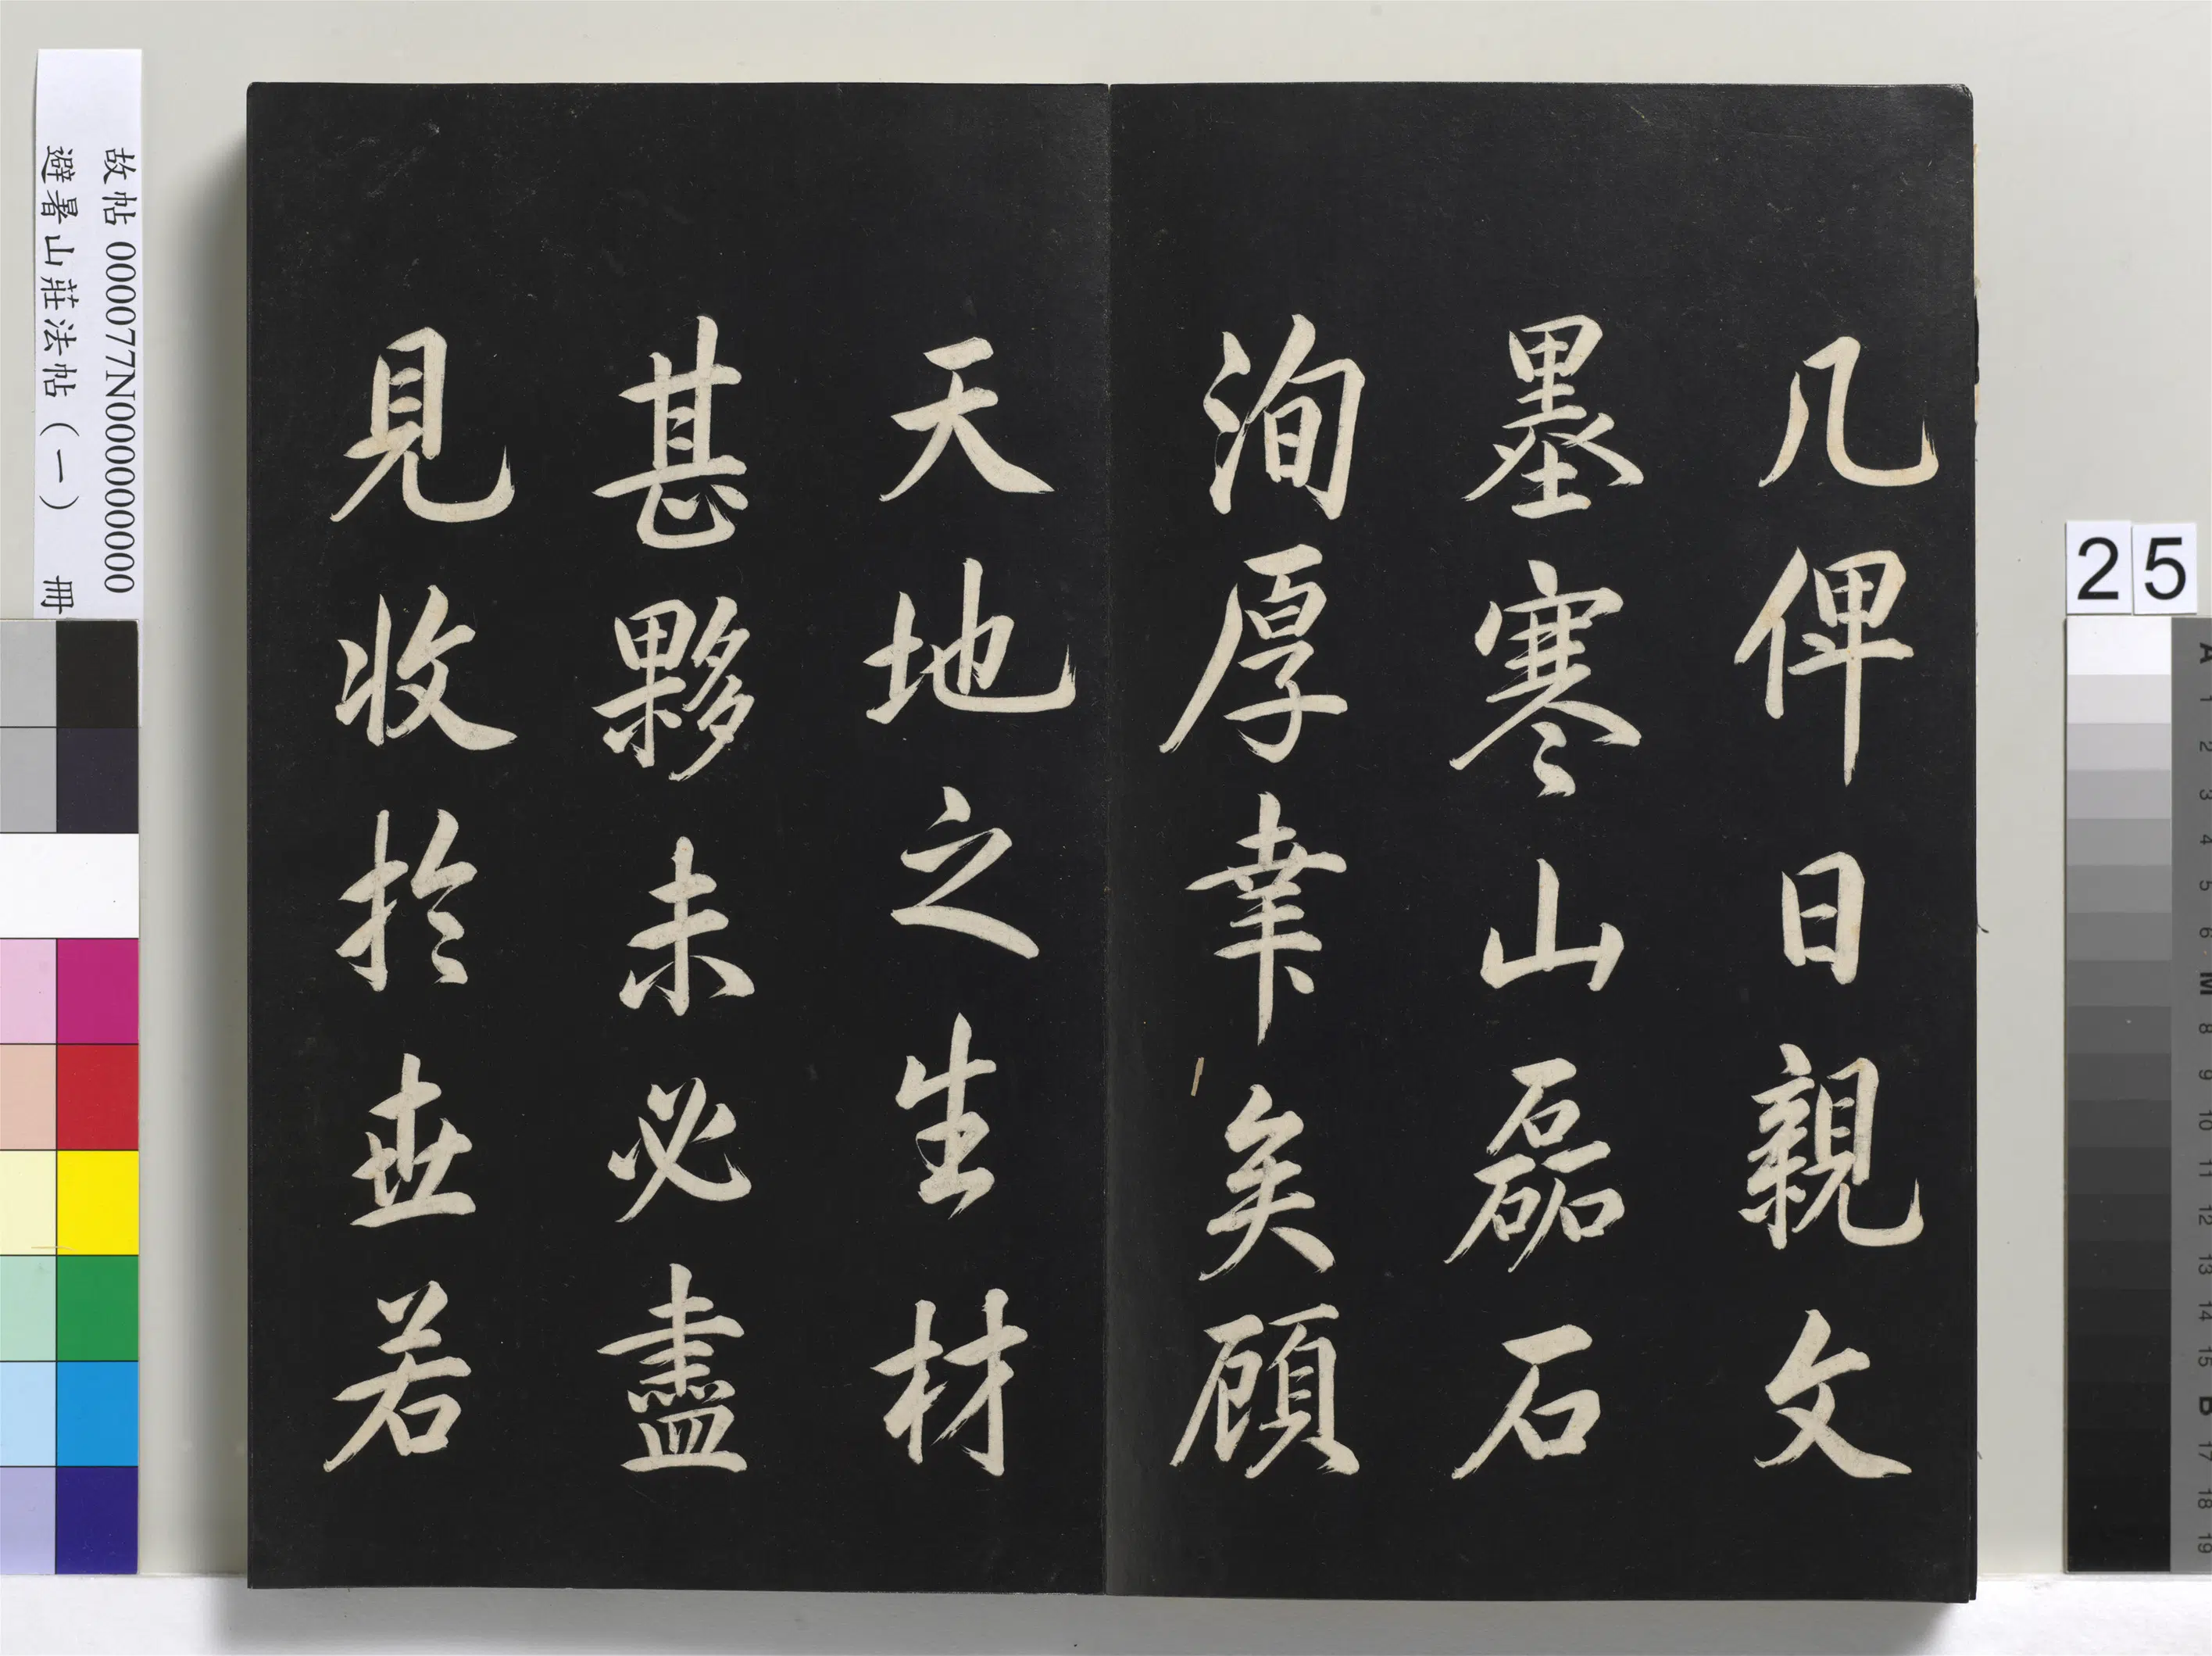 几俾日親文
墨寒山磊石
洵厚幸矣顧
天地之生材
甚夥未必盡
見收於世若
故帖 000077N000000000
避暑山莊法帖（一） 冊
25
A
1
2
3
4
5
6
M
8
9
10
11
12
13
14
15
B
17
18
19